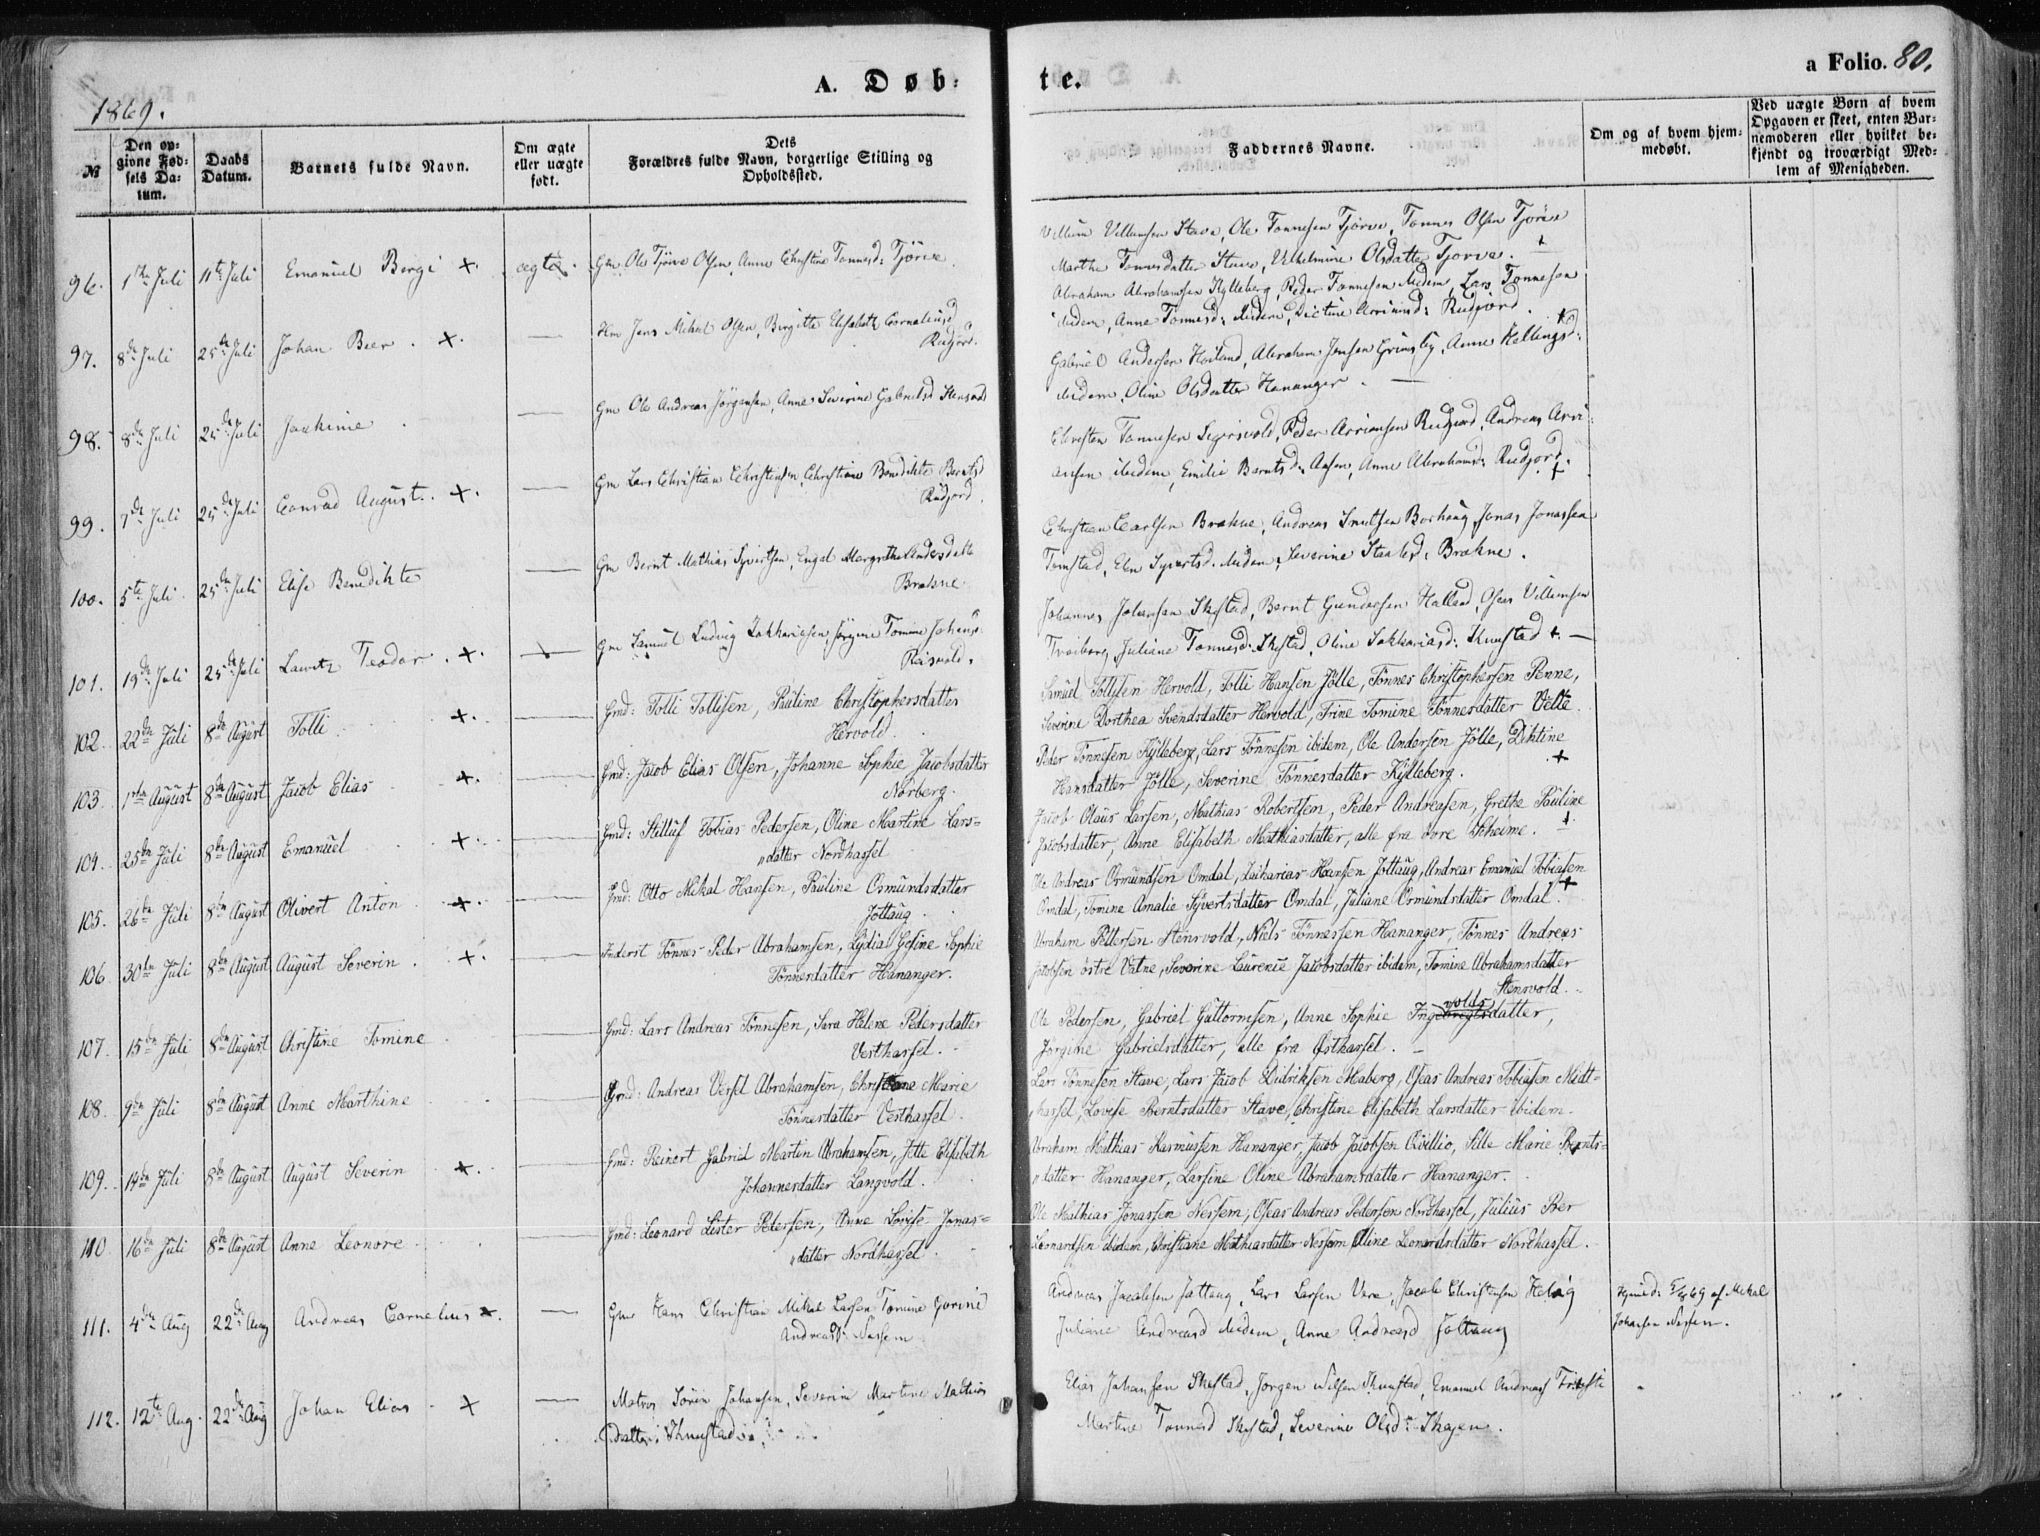 A. Døb-
te.
a Folio. 80.
1869.
№
Den op-
givne Fød-
sels Da-
tum.
Daabs
Datum.
Barnets fulde Navn.
Om ægte
eller uægte
født.
Dets
Forældres fulde Navn, borgerlige Stilling og
Opholdssted.
Faddernes Navne.
Om og af hvem hjem-
medøbt.
Ved uægte Børn af hvem
Opgaven er skeet, enten Bar-
nemoderen eller hvilket be-
kjendt og troværdigt Med-
lem af Menigheden.
96. 1ste Juli 11te Juli Emanuel Bergi +. ægte. Gm Ole Tjörve Olsen, Anne Christine Tønnesd: Tjörve
Villum Villumsen Stave, Ole Tønnesen Tjörve, Tønnes Olsen Tjörve
Marthe Tønnesdatter Stave, Vilhelmine Olsdatter Tjorve. +
97. 8de Juli 25de Juli Johan Beer. +. — Hm Jens Mikal Olsen, Birgitte Elisabeth Corneliusd
Rudjord.
Abraham Abrahamsen Kylleberg, Peder Tønnesen ibidem, Lars Tønnesen
ibidem, Anne Tønnesd: ibidem, Dictine Arrians: Rudjord.
98. 8de Juli 25de Juli Joakime — Gm Ole Andreas Jörgensen, Anne Severine Gabrielsd
Gabriel O Andersen Hoiland, Abraham Jensen Grimsby, Anne Kallingsd:
ibidem, Oline Olsdatter Hananger. —
99. 7de Juli 25de Juli Conrad August. +. — Gm Lars Christian Christensen, Christiane Benedikte Berntsd
Rudjord.
Christen Tønnesen Sigersvold, Peder Arriansen Rudjord, Andreas Arri-
ansen ibidem, Emilie Berntsd: Aasen, Anne Abrahamsd: Rudjord. +
100. 5te Juli 25de Juli Elise Benedikte — Gm Bernt Mathias Syvertsen, Engel Margrethe Andersdatter
Brakne
Christian Carlsen Brakne, Andreas Knutsen Borhaug, Jonas Jonassen
Tomstad, Elen Syvertsd. ibidem, Severine Brakne.
101. 19de Juli 25de Juli Lauritz Teodor. +. — Gm Samuel Ludvig Zakkariasen, Jörgine Tomine Johansd:
Reisvold.
Johannes Johansen Skestad, Bernt Gundersen Halland, Oseas Villumsen
Juliane Tønnesd: Skestad, Oline Sakkariasd: Knustad +. —
102. 22de Juli 8de August Tolli +. — Gmd: Tolli Tollisen, Pauline Christophersdatter
Hervold.
Samuel Tollisen Hervold, Tolli Hansen Jölle, Tönnes Christophersen Penne,
Severine Dorthea Svendsdatter Hervold, Trine Tomine Tönnesdatter Velle.
103. 1ste August 8de August Jacob Elias +. — Gmd: Jacob Elias Olsen, Johanne Sophie Jacobsdatter
Norberg.
Peder Tönnesen Kylleberg, Lars Tönnesen ibidem, Ole Andersen Jölle, Diktine
Hansdatter Jölle, Severine Tönnesdatter Kylleberg. +
104. 25de Juli 8de August Emanuel +. — Gmd: Stilluf Tobias Pedersen, Oline Martine Lars=
„datter Nordhassel
Jacob Olaus Larsen, Mathias Robertsen, Peder Andreasen, Grethe Pauline
Jacobsdatter, Anne Elisabeth Mathiasdatter, alle fra Vore Skeime. +
105. 26de Juli 8de August Olivert Anton +. — Gmd: Otto Mikal Hansen, Pauline Osmundsdatter
Jöttaug.
Ole Andreas Ormundsen Omdal, Zakarias Hansen Jöttaug, Andreas Emanuel Tobiasen
Omdal, Tomine Amalie Syvertsdatter Omdal, Juliane Ormundsdatter Omdal. +
106. 30te Juli 8de August August Severin. +. — Inderst Tönnes Peder Abrahamsen, Lydia Gesine Sophie
Tönnesdatter Hananger.
Abraham Pettersen Stensvold, Niels Tönnessen Hananger, Tönnes Andreas
Jacobsen östre Vatne, Severine Laurence Jacobsdatter ibidem, Tomine Abrahamsdatter
Stensvold.
107. 15de Juli 8de August Christine Tomine — Gmd: Lars Andreas Tönnesen, Sara Helene Pedersdatter
Vesthassel.
Ole Pedersen, Gabriel Guttormsen, Anne Sophie Ingevoldsdatter,
Jorgine Gabrielsdatter, alle fra Østhassel. —
108. 9de Juli 8de August Anne Marthine — Gmd: Andreas Versel Abrahamsen, Christiane Marie
Tönnesdatter Vesthassel.
Lars Tönnesen Stave, Lars Jacob Didriksen Maberg, Oseas Andreas Tobiasen Midt=
„hassel, Lovise Berntsdatter Stave, Christine Elisabeth Larsdatter ibidem.
109. 14de Juli 8de August August Severin +. — Gmd: Reinert Gabriel Martin Abrahamsen, Jette Elisabeth
Johannesdatter Langvold.
Abraham Mathias Rasmussen Hananger, Jacob Jacobsen Qvillio, Sille Marie Bernts-
„datter Hananger, Larsine Oline Abrahamsdatter Hananger.
110. 16de Juli 8de August Anne Leonore — Gmd: Leonard Lister Pedersen, Anne Lovise Jonas=
„datter Nordhassel
Ole Mathias Jonassen Nessem, Oseas Andreas Pedersen Nordhassel, Julius Peer
Leonardsen ibidem, Christiane Mathiasdatter Nessem, Oline Leonardsdatter Nordhassel.
111. 4de Aug 22de Aug Andreas Cornelius +. — Gm Hans Christian Mikal Larsen, Tomine Gorine
Andreasd: Nessem
Andreas Jacobsen Jøttaug, Lars Larsen Vere, Jacob Christensen
Juliane Andreasd ibidem, Anne Andreasd Jøttaug
Hjmd: 5/8 69 af Mikal
Johansen Nessem.
112. 12te Aug. 22de Aug Johan Elias + — Matros Sören Johansen, Severine Martine Mathias
datter Knustad
Elias Johansen Skestad, Jorgen Nilsen Knustad, Emanuel Andreas
Martine Tønnesd Skestad, Severine Olsd: Skagen.